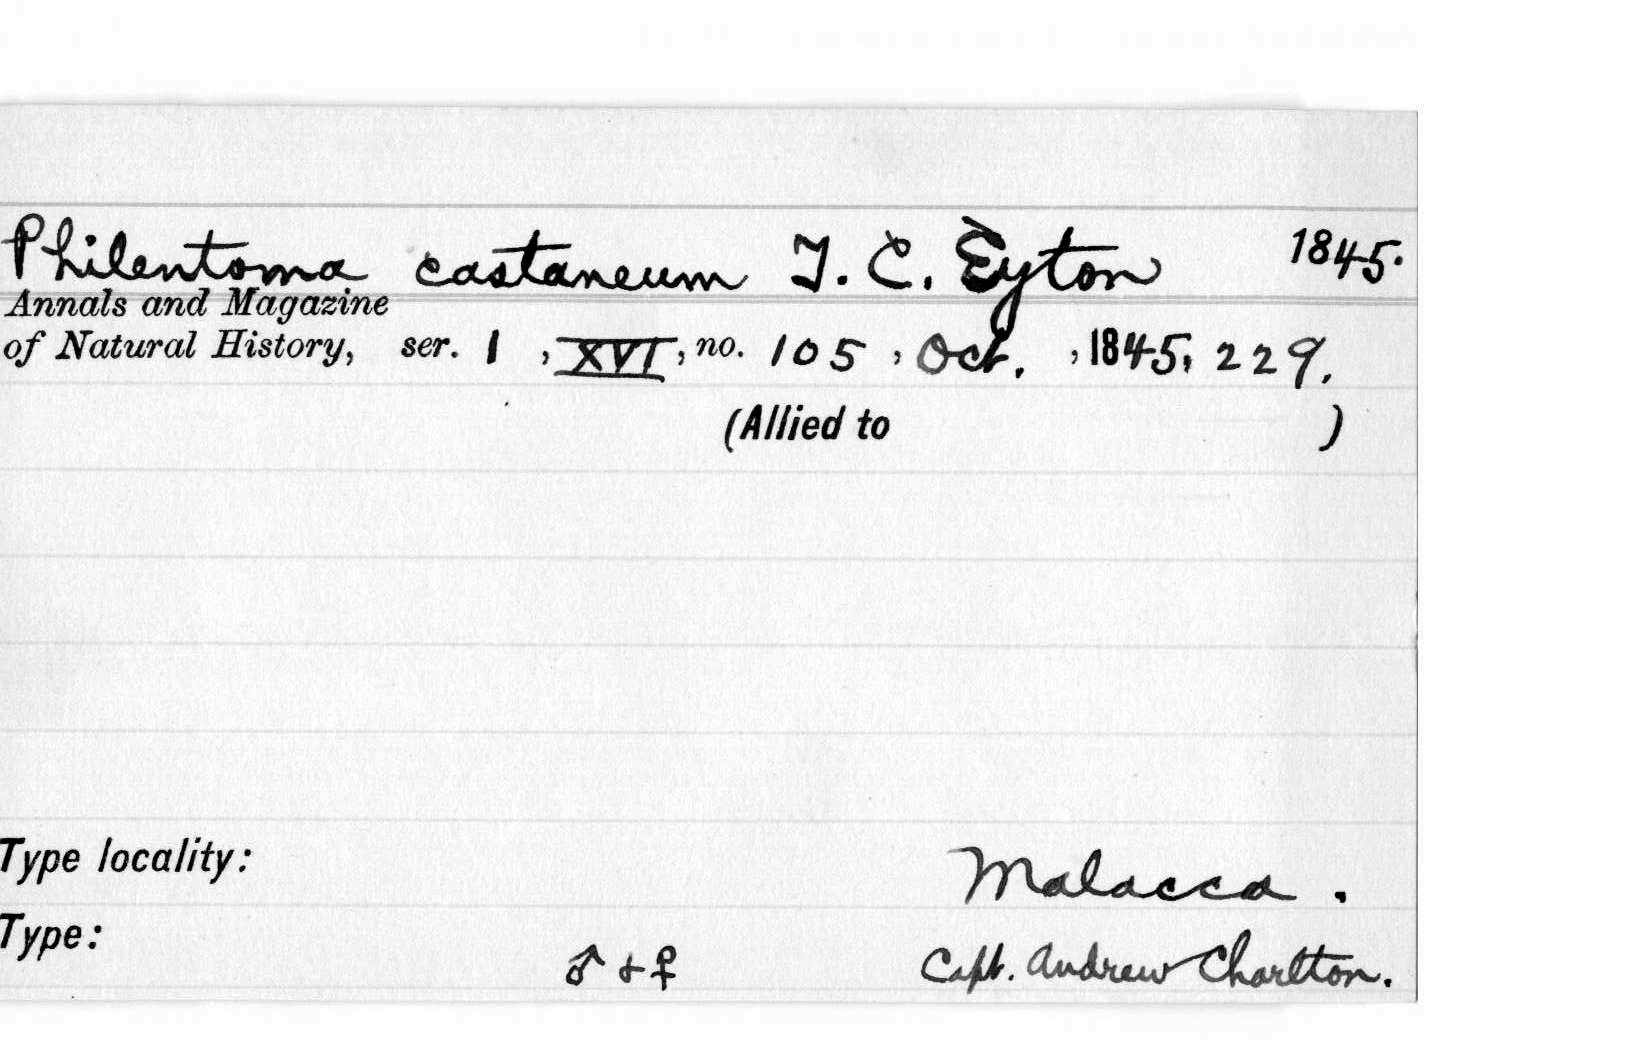 Philentoma castaneum T. C. Eyton 1845.
Annals and Magazine
of Natural History, ser. 1, XVI, no. 105, Oct., 1845, 229.
(Allied to )
Type locality: Malacca.
Type: ♂ & ♀ Capt. Andrew Charlton.